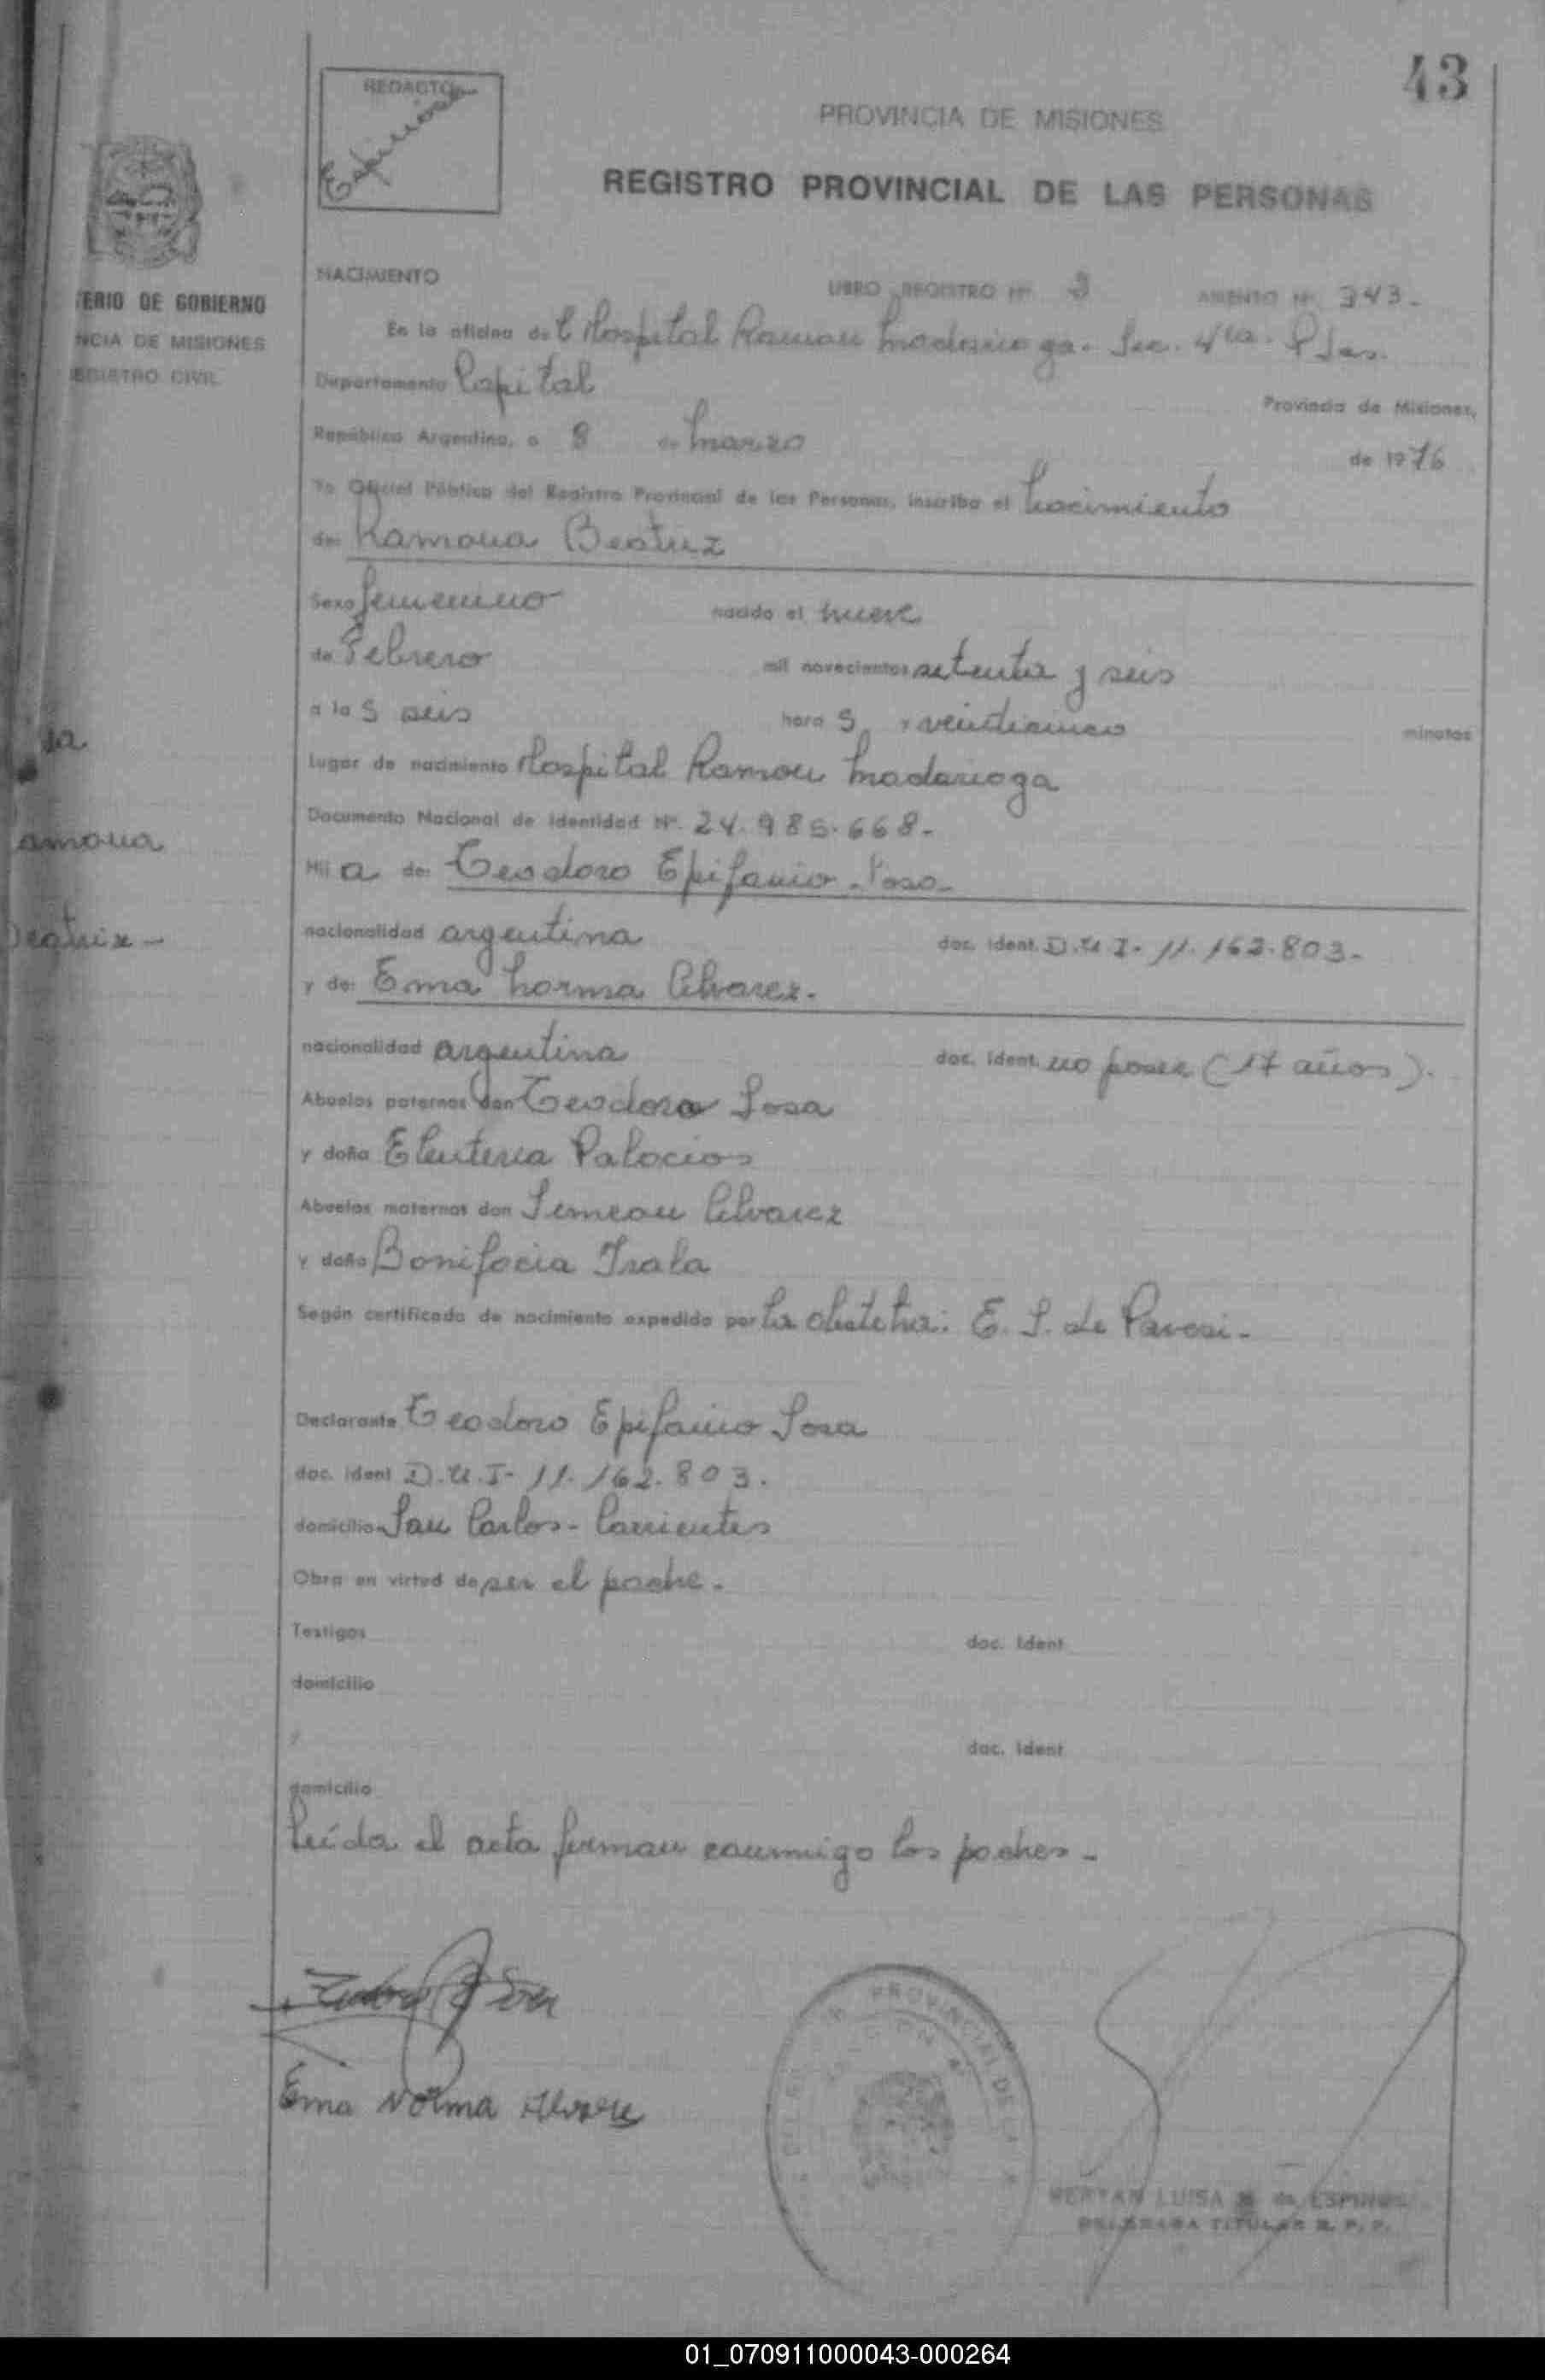 43
REDACTO
Espinosa
PROVINCIA DE MISIONES
REGISTRO PROVINCIAL DE LAS PERSONAS
ERIO DE GOBIERNO
NCIA DE MISIONES
EGISTRO CIVIL
NACIMIENTO LIBRO REGISTRO Nº 3 ASIENTO Nº 343-
En la oficina del Hospital Ramon Madariaga. Sec. 4ta. Pdas.
Departamento Capital Provincia de Misiones,
República Argentina, a 8 de Marzo de 1976
Yo Oficial Público del Registro Provincial de las Personas, inscribo el Nacimiento
de: Ramona Beatriz
Sexo femenino nacido el nueve
de Febrero mil novecientos setenta y seis
a las seis horas y veinticinco minutos
Lugar de nacimiento Hospital Ramon Madariaga
Documento Nacional de Identidad Nº. 24.985.668-
Hija de: Teodoro Epifanio Sosa-
nacionalidad argentina doc. ident. D.U.I- 11.162.803-
y de: Ema Norma Alvarez-
nacionalidad argentina doc. ident. no posee (17 años).
Abuelos paternos don Teodoro Sosa
y doña Eleuteria Palacios
Abuelos maternos don Simeon Alvarez
y doña Bonifacia Irala
Según certificado de nacimiento expedido por la obstetra: E. S. de Pavesi-
Declarante Teodoro Epifanio Sosa
doc. ident D.U.I- 11.162.803.
domicilio San Carlos- Corrientes
Obra en virtud de ser el padre.
Testigos doc. ident
domicilio
y doc. ident
domicilio
Leída el acta firman conmigo los padres-
amona
Beatriz-
Ema Norma Alvare
PROVINCIAL DE LA
LUISA de ESPINOSA
DELEGADA TITULAR R. P. P.
01_070911000043-000264